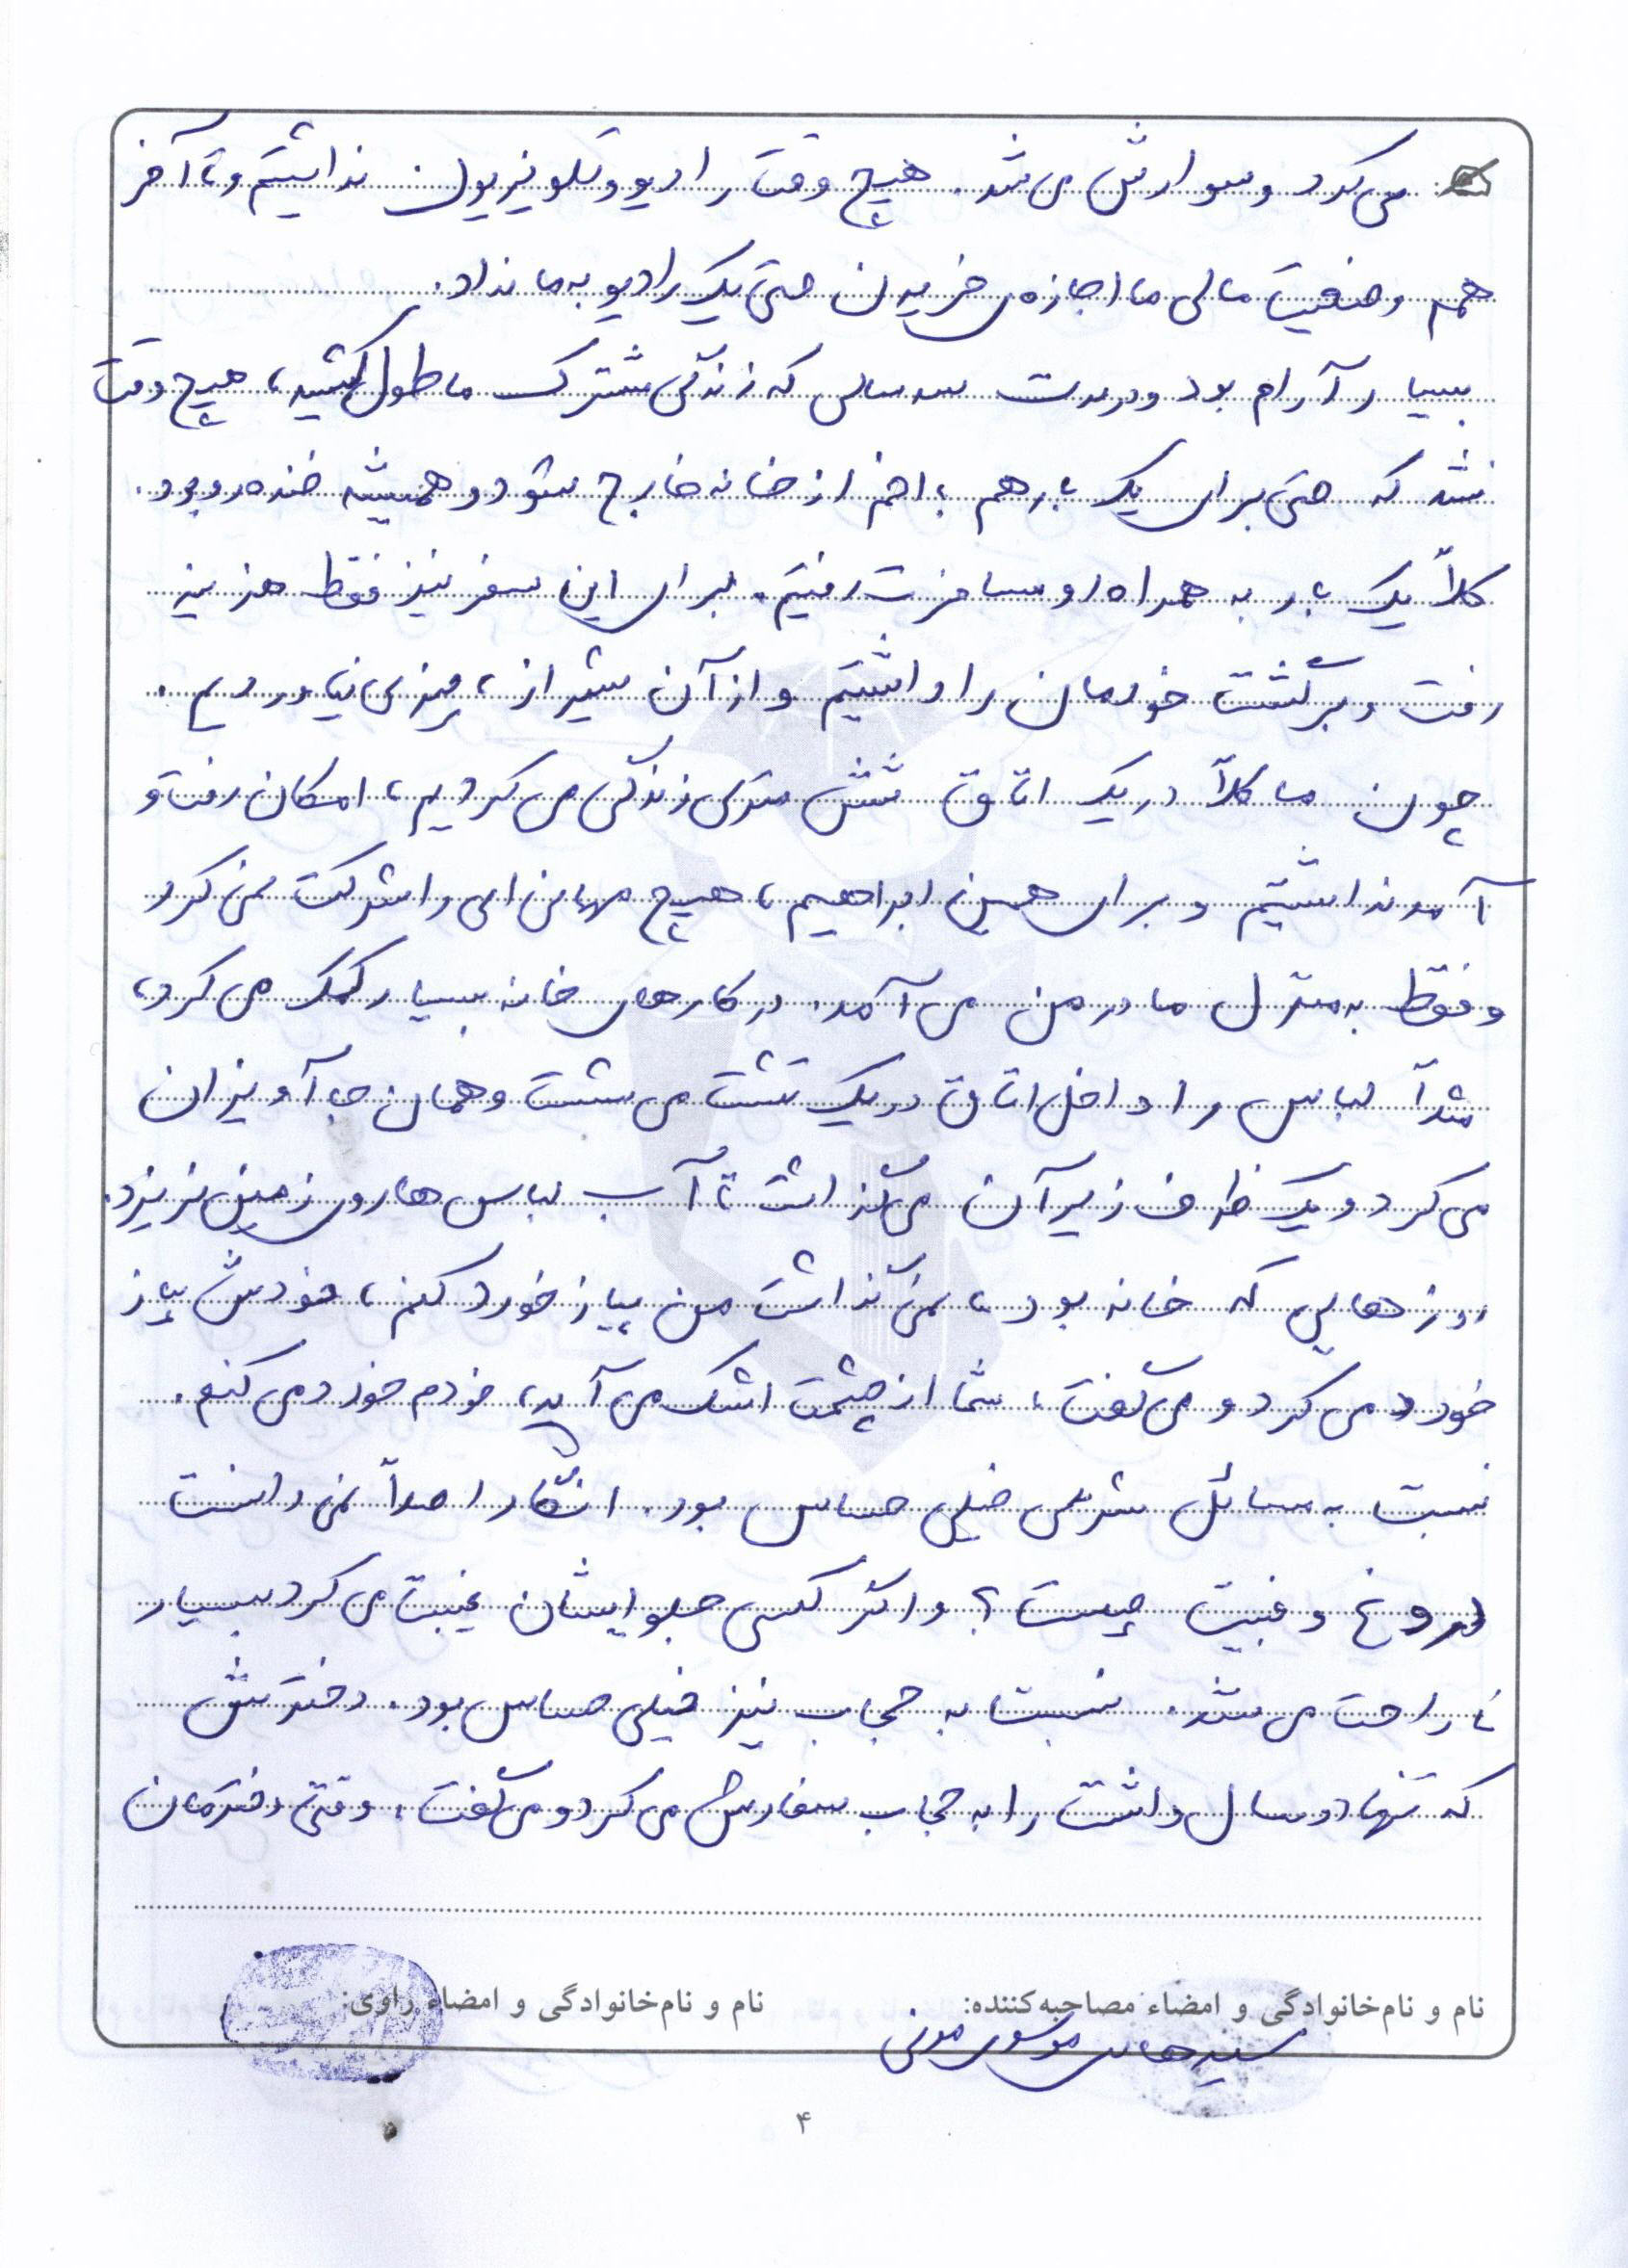 می‌کرد و سوارش می‌شد. هیچ وقت رادیو و تلویزیون نداشتیم و تا آخر
هم وضعیت مالی ما اجازه‌ی خریدن حتی یک رادیو به ما نداد.
بسیار آرام بود و در مدت سه سالی که زندگی مشترک ما طول کشید، هیچ وقت
نشد که حتی برای یک بار هم با اخم از خانه خارج شود و همیشه خنده‌رو بود.
کلاً یک بار به همراه او مسافرت رفتیم. برای این سفر نیز فقط هزینه
رفت و برگشت خودمان را داشتیم و از آن شیراز، چیزی نیاوردیم.
چون ما کلاً در یک اتاق شش متری زندگی می‌کردیم، امکان رفت و
آمد نداشتیم و برای همین ابراهیم، هیچ مهمانی‌ای را شرکت نمی‌کرد
و فقط به منزل مادر من می‌آمد. در کارهای خانه بسیار کمک می‌کرد،
مثلاً لباس را داخل اتاق در یک تشت می‌شست و همان جا آویزان
می‌کرد و یک ظرف زیر آن می‌گذاشت تا آب لباس‌ها روی زمین نریزد.
روزهایی که خانه بود، نمی‌گذاشت من پیاز خورد کنم، خودش پیاز
خورد می‌کرد و می‌گفت، شما از چشمت اشک می‌آید، خودم خورد می‌کنم.
نسبت به مسائل شرعی خیلی حساس بود. انگار اصلاً نمی‌دانست
دروغ و غیبت چیست؟ و اگر کسی جلو ایشان غیبت می‌کرد بسیار
ناراحت می‌شد. نسبت به حجاب نیز خیلی حساس بود. دخترش
که تنها دو سال داشت را به حجاب سفارش می‌کرد و می‌گفت، وقتی دخترمان
نام و نام‌خانوادگی و امضاء مصاحبه‌کننده: نام و نام‌خانوادگی و امضاء راوی:
سید هادی موسوی
۴